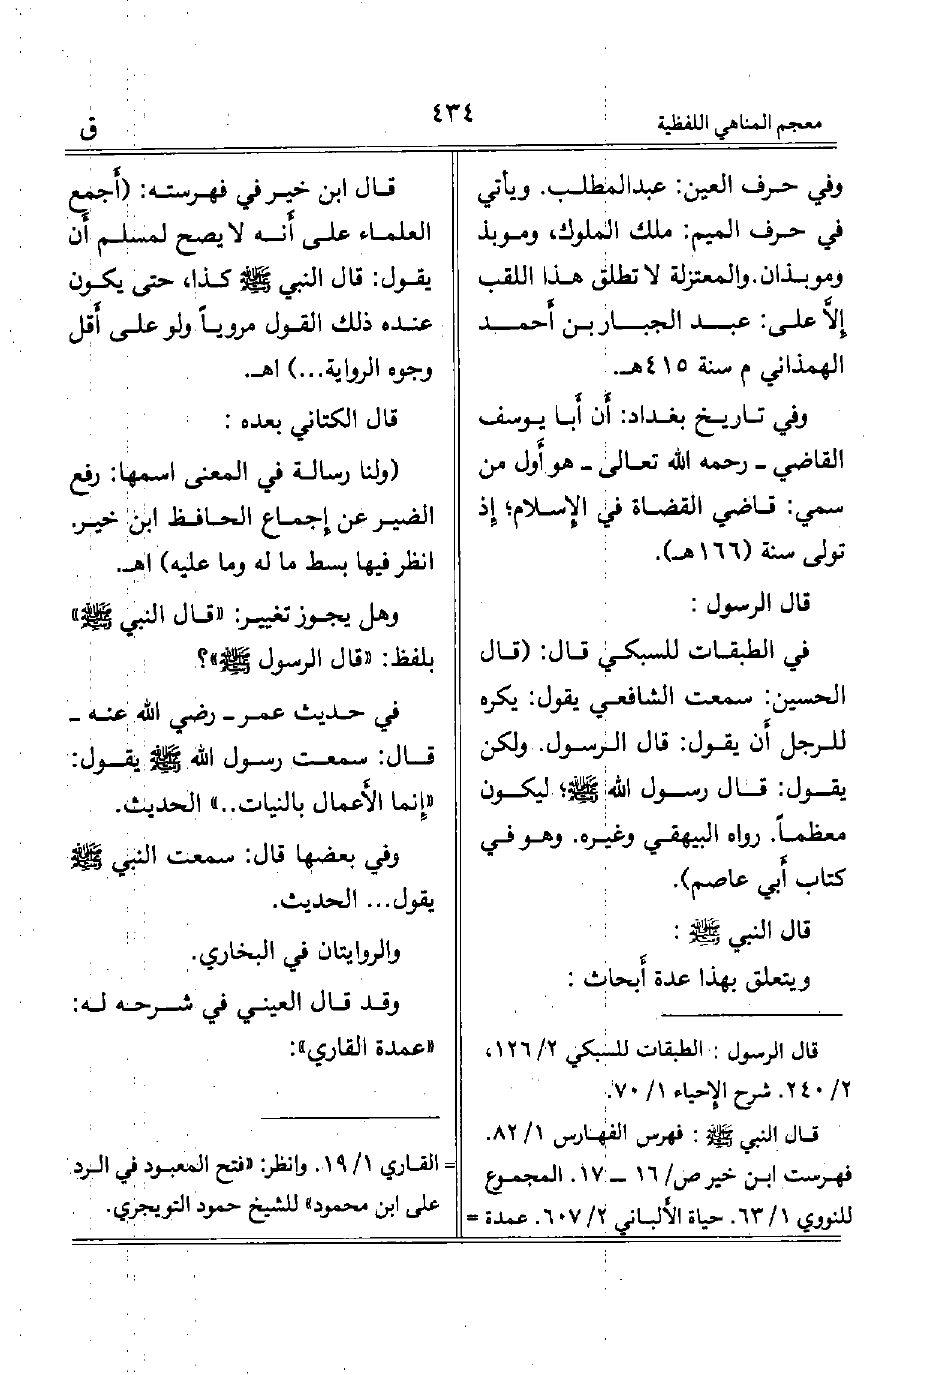 معجم المناهي اللفظية
٤٣٤
ق
وفي حرف العين: عبدالمطلب. ويأتي
في حرف الميم: ملك الملوك، وموبذ
وموبذان. والمعتزلة لا تطلق هذا اللقب
إلاَّ على: عبد الجبار بن أحمد
الهمذاني م سنة ٤١٥هـ.
وفي تاريخ بغداد: أن أبا يوسف
القاضي ـ رحمه الله تعالى ـ هو أول من
سمي: قاضي القضاة في الإسلام؛ إذ
تولى سنة (١٦٦هـ).
قال الرسول :
في الطبقات للسبكي قال: (قال
الحسين: سمعت الشافعي يقول: يكره
للرجل أن يقول: قال الرسول. ولكن
يقول: قال رسول الله ﷺ؛ ليكون
معظماً. رواه البيهقي وغيره. وهو في
كتاب أبي عاصم).
قال النبي ﷺ :
ويتعلق بهذا عدة أبحاث :
قال الرسول : الطبقات للسبكي ٢/ ١٢٦،
٢/ ٢٤٠. شرح الإحياء ١/ ٧٠.
قال النبي ﷺ : فهرس الفهارس ١/ ٨٢.
فهرست ابن خير ص/ ١٦ ــ ١٧. المجموع
للنووي ١/ ٦٣. حياة الألباني ٢/ ٦٠٧. عمدة =
قال ابن خير في فهرسته: (أجمع
العلماء على أنه لا يصح لمسلم أن
يقول: قال النبي ﷺ كذا، حتى يكون
عنده ذلك القول مروياً ولو على أقل
وجوه الرواية...) اهـ.
قال الكتاني بعده :
(ولنا رسالة في المعنى اسمها: رفع
الضير عن إجماع الحافظ ابن خير.
انظر فيها بسط ما له وما عليه) اهـ.
وهل يجوز تغيير: «قال النبي ﷺ»
بلفظ: «قال الرسول ﷺ»؟
في حديث عمر ـ رضي الله عنه ـ
قال: سمعت رسول الله ﷺ يقول:
«إنما الأعمال بالنيات..» الحديث.
وفي بعضها قال: سمعت النبي ﷺ
يقول... الحديث.
والروايتان في البخاري.
وقد قال العيني في شرحه له:
«عمدة القاري»:
= القاري ١/ ١٩. وانظر: «فتح المعبود في الرد
على ابن محمود» للشيخ حمود التويجري.